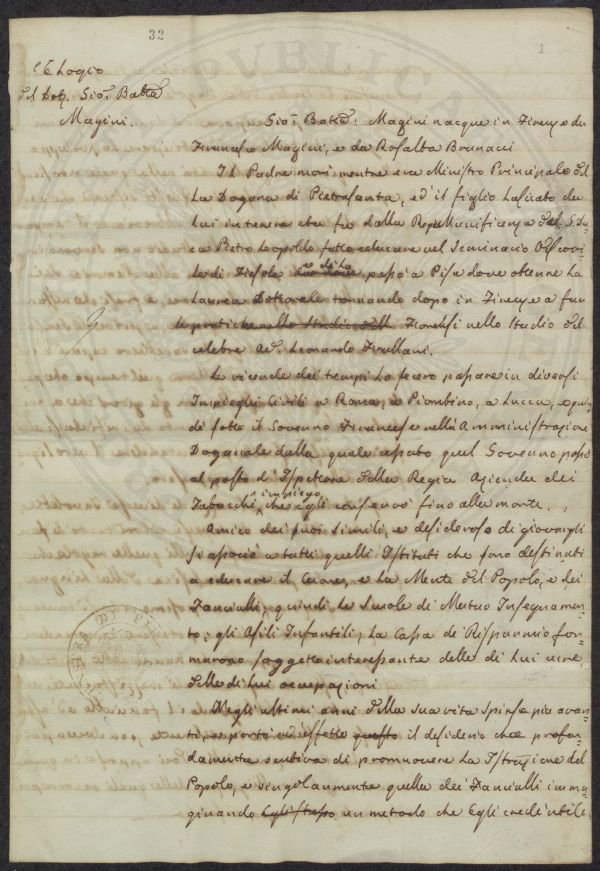 32
1
Elogio
del Dott. Gio: Batta
Magini.
Gio: Batta: Magini nacque in Firenze da
Francesco Magini, e da Rosalba Brunaci
Il Padre morì mentre era Ministro Principale del
la Dogana di Pietrasanta, ed il figlio lasciato da
lui in tenera età fu dalla Regia Munificenza del G. Du=
ca Pietro Leopoldo fatto educare nel Seminario Vescovi=
le di Fiesole e di là passò a Pisa dove ottenne la
Laurea Dottorale tornando dopo in Firenze a far
le pratiche nello Studio dell Forensi nello Studio del
celebre Av. Leonardo Frullani.
Le vicende dei tempi lo fecero passare in diversi
Impieghi Civili a Roma, a Piombino, a Lucca, e quin=
di sotto il Governo Francese nella Amministrazione
Doganale dalla quale cessato quel Governo passò
al posto di Ispettore della Regia Azienda dei
Tabacchi, che impiego egli conservò fino alla morte.
Amico dei suoi simili, e desideroso di giovargli
si associò a tutti quelli Istituti che sono destinati
a educare il Cuore, e la Mente del Popolo, e dei
Fanciulli, quindi le Scuole di Mutuo Insegnamen=
to, gli Asili Infantili, la Cassa di Risparmio for=
marono soggetto interessante delle di Lui cure,
delle di Lui occupazioni
Negli ultimi anni della sua vita spinse più avan=
ti, e portò ad effetto questo il desiderio che profon=
damente sentiva di promuovere la Istruzione del
Popolo, e singolarmente quella dei Fanciulli imma=
ginando Egli stesso un metodo che Egli credè utile